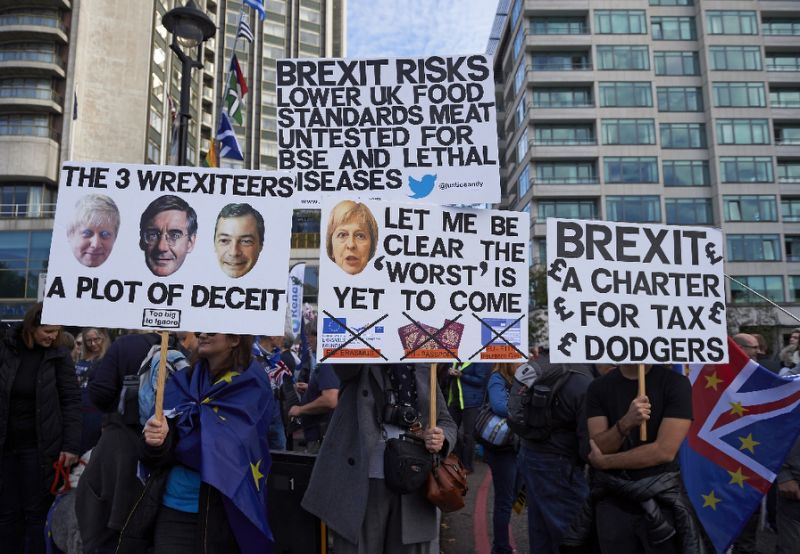 BREXIT RISKS
LOWER UK FOOD
STANDARDS MEAT
UNTESTED FOR
BSE AND LETHAL
DISEASES
@justiceandy
THE 3 WREXITEERS
A PLOT OF DECEIT
Too big
to ignore
LET ME BE
CLEAR THE
'WORST' IS
YET TO COME
BREXIT
£
£ A CHARTER
£ FOR TAX £
£ DODGERS